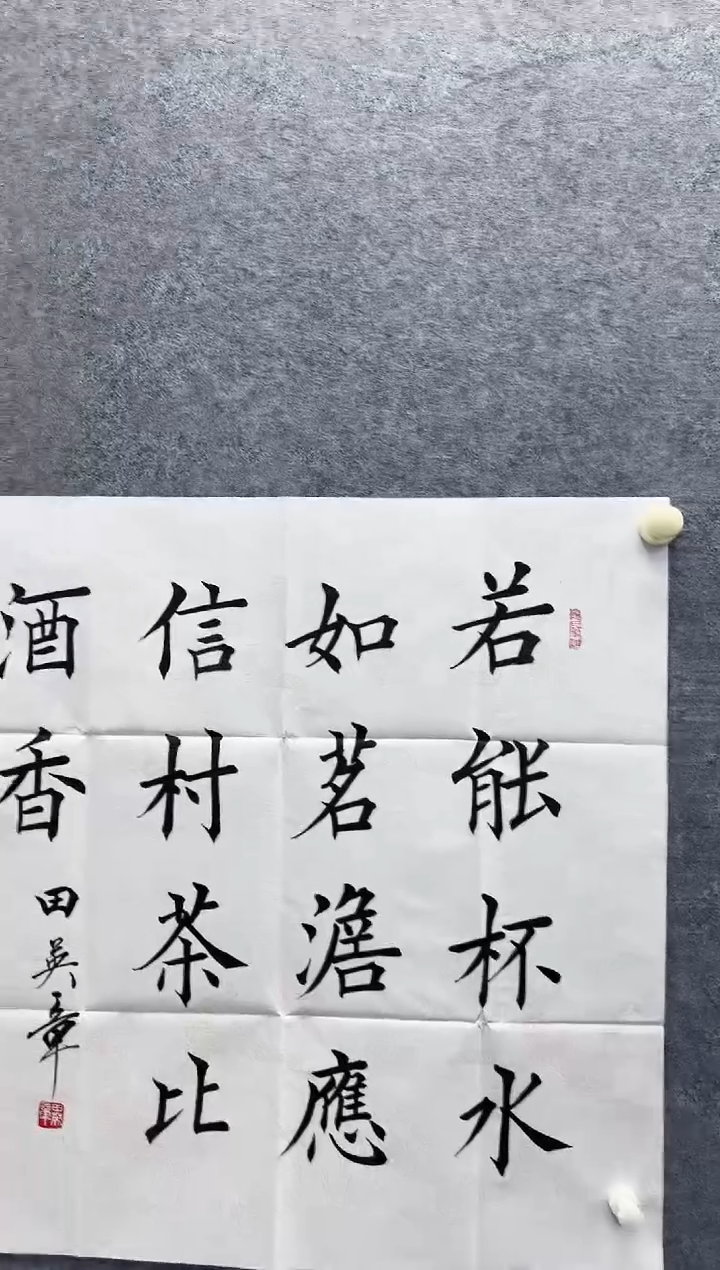 若能杯水
如茗澹應
信村茶比
酒香
田英章